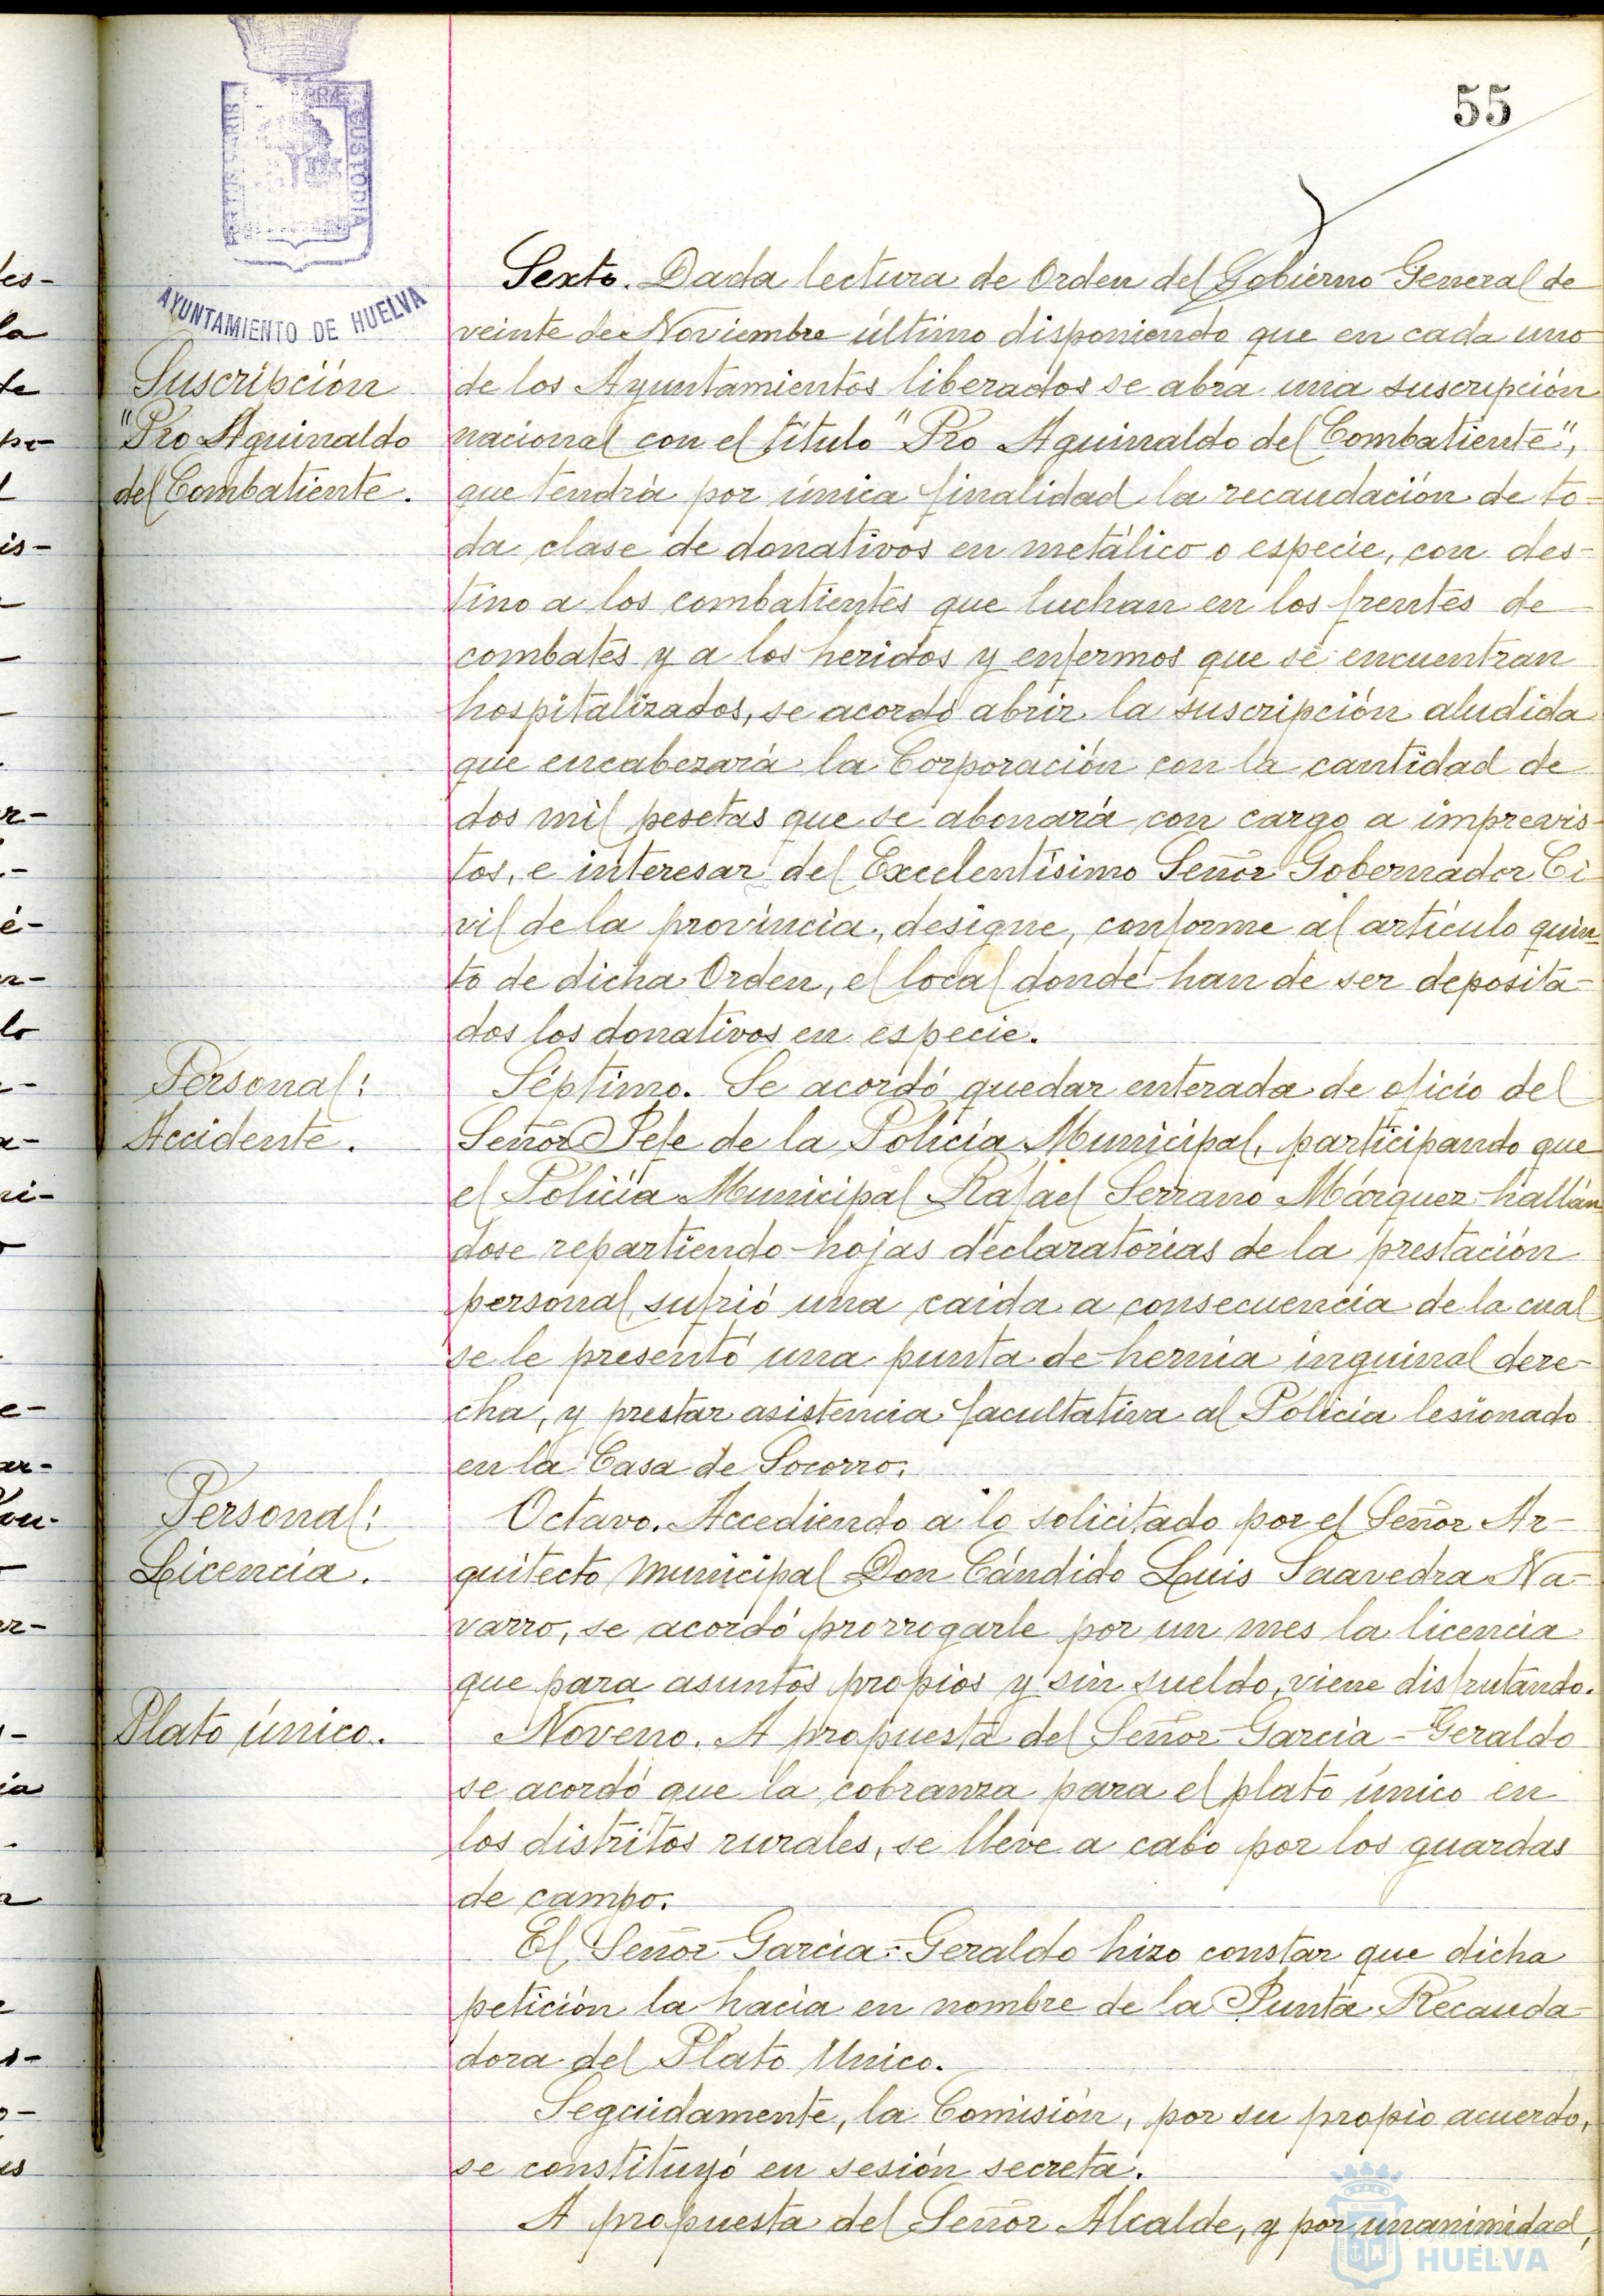 55
AYUNTAMIENTO DE HUELVA
Suscripción
"Pro Aguinaldo
del Combatiente.
Sexto. Dada lectura de Orden del Gobierno General de
veinte de Noviembre último disponiendo que en cada uno
de los Ayuntamientos liberados se abra una suscripción
nacional con el título "Pro Aguinaldo del Combatiente",
que tendrá por única finalidad la recaudación de to-
da clase de donativos en metálico o especie, con des-
tino a los combatientes que luchan en los frentes de
combates y a los heridos y enfermos que se encuentran
hospitalizados, se acordó abrir la suscripción aludida
que encabezará la Corporación con la cantidad de
dos mil pesetas que se abonará con cargo a imprevis-
tos, e interesar del Excelentísimo Señor Gobernador Ci-
vil de la provincia, designe, conforme al artículo quin-
to de dicha Orden, el local donde han de ser deposita-
dos los donativos en especie.
Personal:
Accidente.
Séptimo. Se acordó quedar enterada de oficio del
Señor Jefe de la Policía Municipal, participando que
el Policía Municipal Rafael Serrano Márquez hallán
dose repartiendo hojas declaratorias de la prestación
personal sufrió una caida a consecuencia de la cual
se le presentó una punta de hernia inguinal dere-
cha, y prestar asistencia facultativa al Policía lesionado
en la Casa de Socorro.
Personal:
Licencia.
Octavo. Accediendo a lo solicitado por el Señor Ar-
quitecto Municipal Don Cándido Luis Saavedra Na-
varro, se acordó prorrogarle por un mes la licencia
que para asuntos propios y sin sueldo, viene disfrutando.
Plato único.
Noveno. A propuesta del Señor García-Geraldo
se acordó que la cobranza para el plato único en
los distritos rurales, se lleve a cabo por los guardas
de campo.
El Señor García-Geraldo hizo constar que dicha
petición la hacía en nombre de la Junta Recauda-
dora del Plato Unico.
Seguidamente, la Comisión, por su propio acuerdo,
se constituyó en sesión secreta.
A propuesta del Señor Alcalde, y por unanimidad,
HUELVA